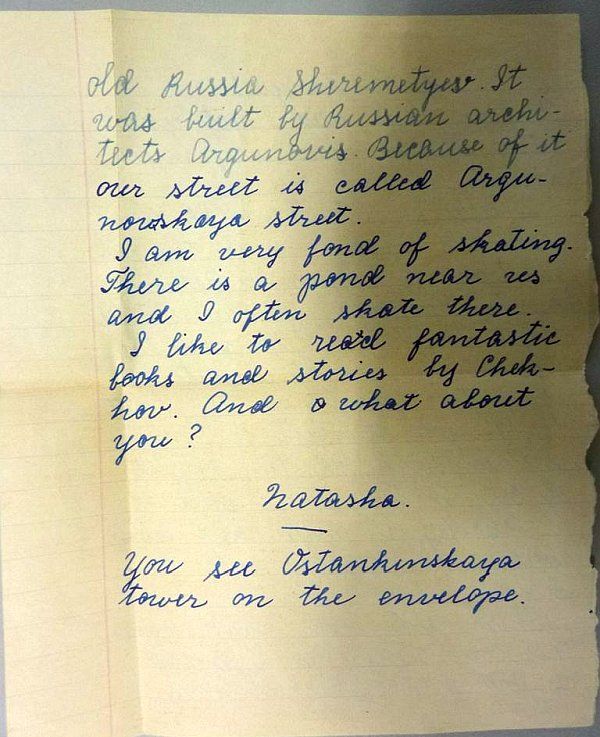 old Russia Sheremetyev. It
was built by Russian archi-
tects Argunovis. Because of it
our street is called Argu-
novskaya street.
I am very fond of skating.
There is a pond near us
and I often skate there.
I like to read fantastic
books and stories by Chek-
hov. And what about
you?
Natasha.
You see Ostankinskaya
tower on the envelope.